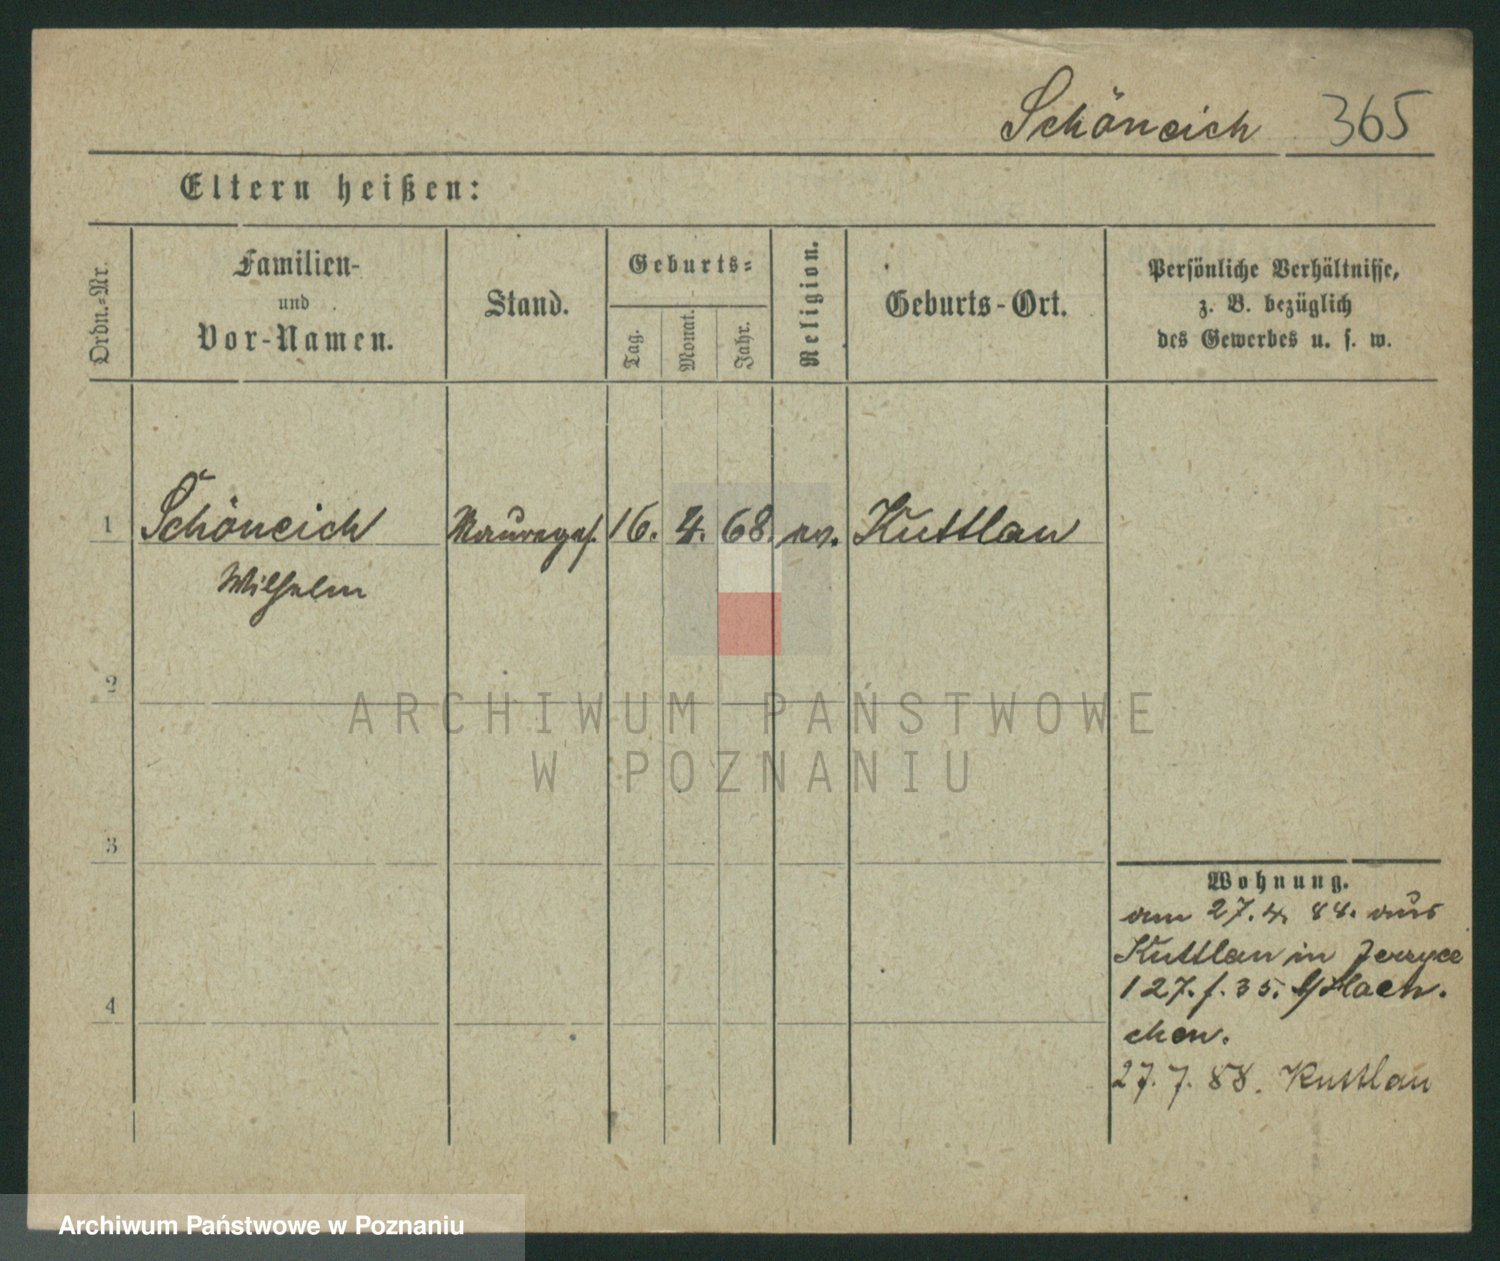 Schöneich 365
Eltern heißen:
Ordn.-Nr.
Familien-
und
Vor-Namen.
Stand.
Geburts-
Tag.
Monat.
Jahr.
Religion.
Geburts-Ort.
Persönliche Verhältnisse,
z. B. bezüglich
des Gewerbes u. s. w.
1 Schöneich Maurerges. 16. 4. 68. ev. Kuttlau
Wilhelm
2
3
4
Wohnung.
am 27. 4. 88. aus
Kuttlau in Jerzyce
127. f. 35. b/
chen.
27. 7. 88. Kuttlau
ARCHIWUM PAŃSTWOWE
W POZNANIU
Archiwum Państwowe w Poznaniu